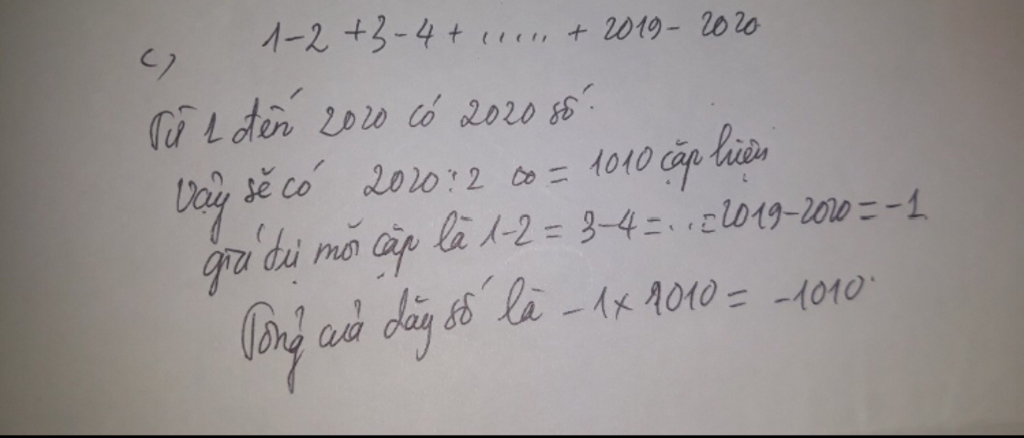 c, 1-2+3-4+.....+2019-2020
Từ 1 đến 2020 có 2020 số.
Vậy sẽ có 2020:2 = 1010 cặp hiệu
giá trị mỗi cặp là 1-2 = 3-4=...=2019-2020=-1
Tổng của dãy số là -1x1010 = -1010.